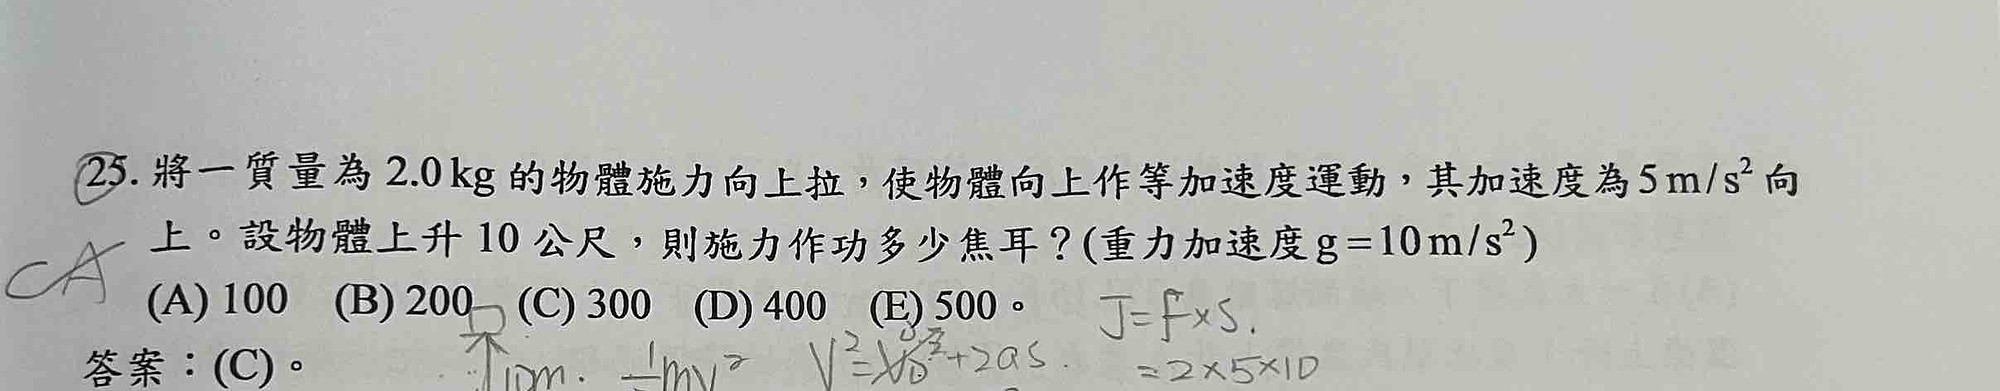 25. 將一質量為 2.0 kg 的物體施力向上拉，使物體向上作等加速度運動，其加速度為 5 m/s² 向
上。設物體上升 10 公尺，則施力作功多少焦耳？(重力加速度 g=10 m/s²)
CA
(A) 100 (B) 200 (C) 300 (D) 400 (E) 500。
J=F×S.
答案：(C)。
10m.
½mv²
V²=V₀²+2as.
=2×5×10